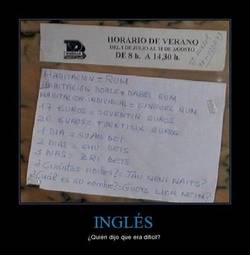 HORARIO DE VERANO
DEL 1 DE JULIO AL 31 DE AGOSTO
DE 8 h. A 14,30 h.
HABITACION = RUM
HABITACION DOBLE = DABEL RUM
HABITACION INDIVIDUAL = SINGEL RUM
17 EUROS = SEVENTIN EUROS
26 EUROS = TUENTISIX EUROS
1 DIA = UUAN DEI
2 DIAS = CHU DEIS
3 DIAS = ZRI DEIS
¿CUANTAS NOCHES? = JAU MENI NAITS?
¿Cuál es su nombre? =
INGLÉS
¿Quién dijo que era difícil?